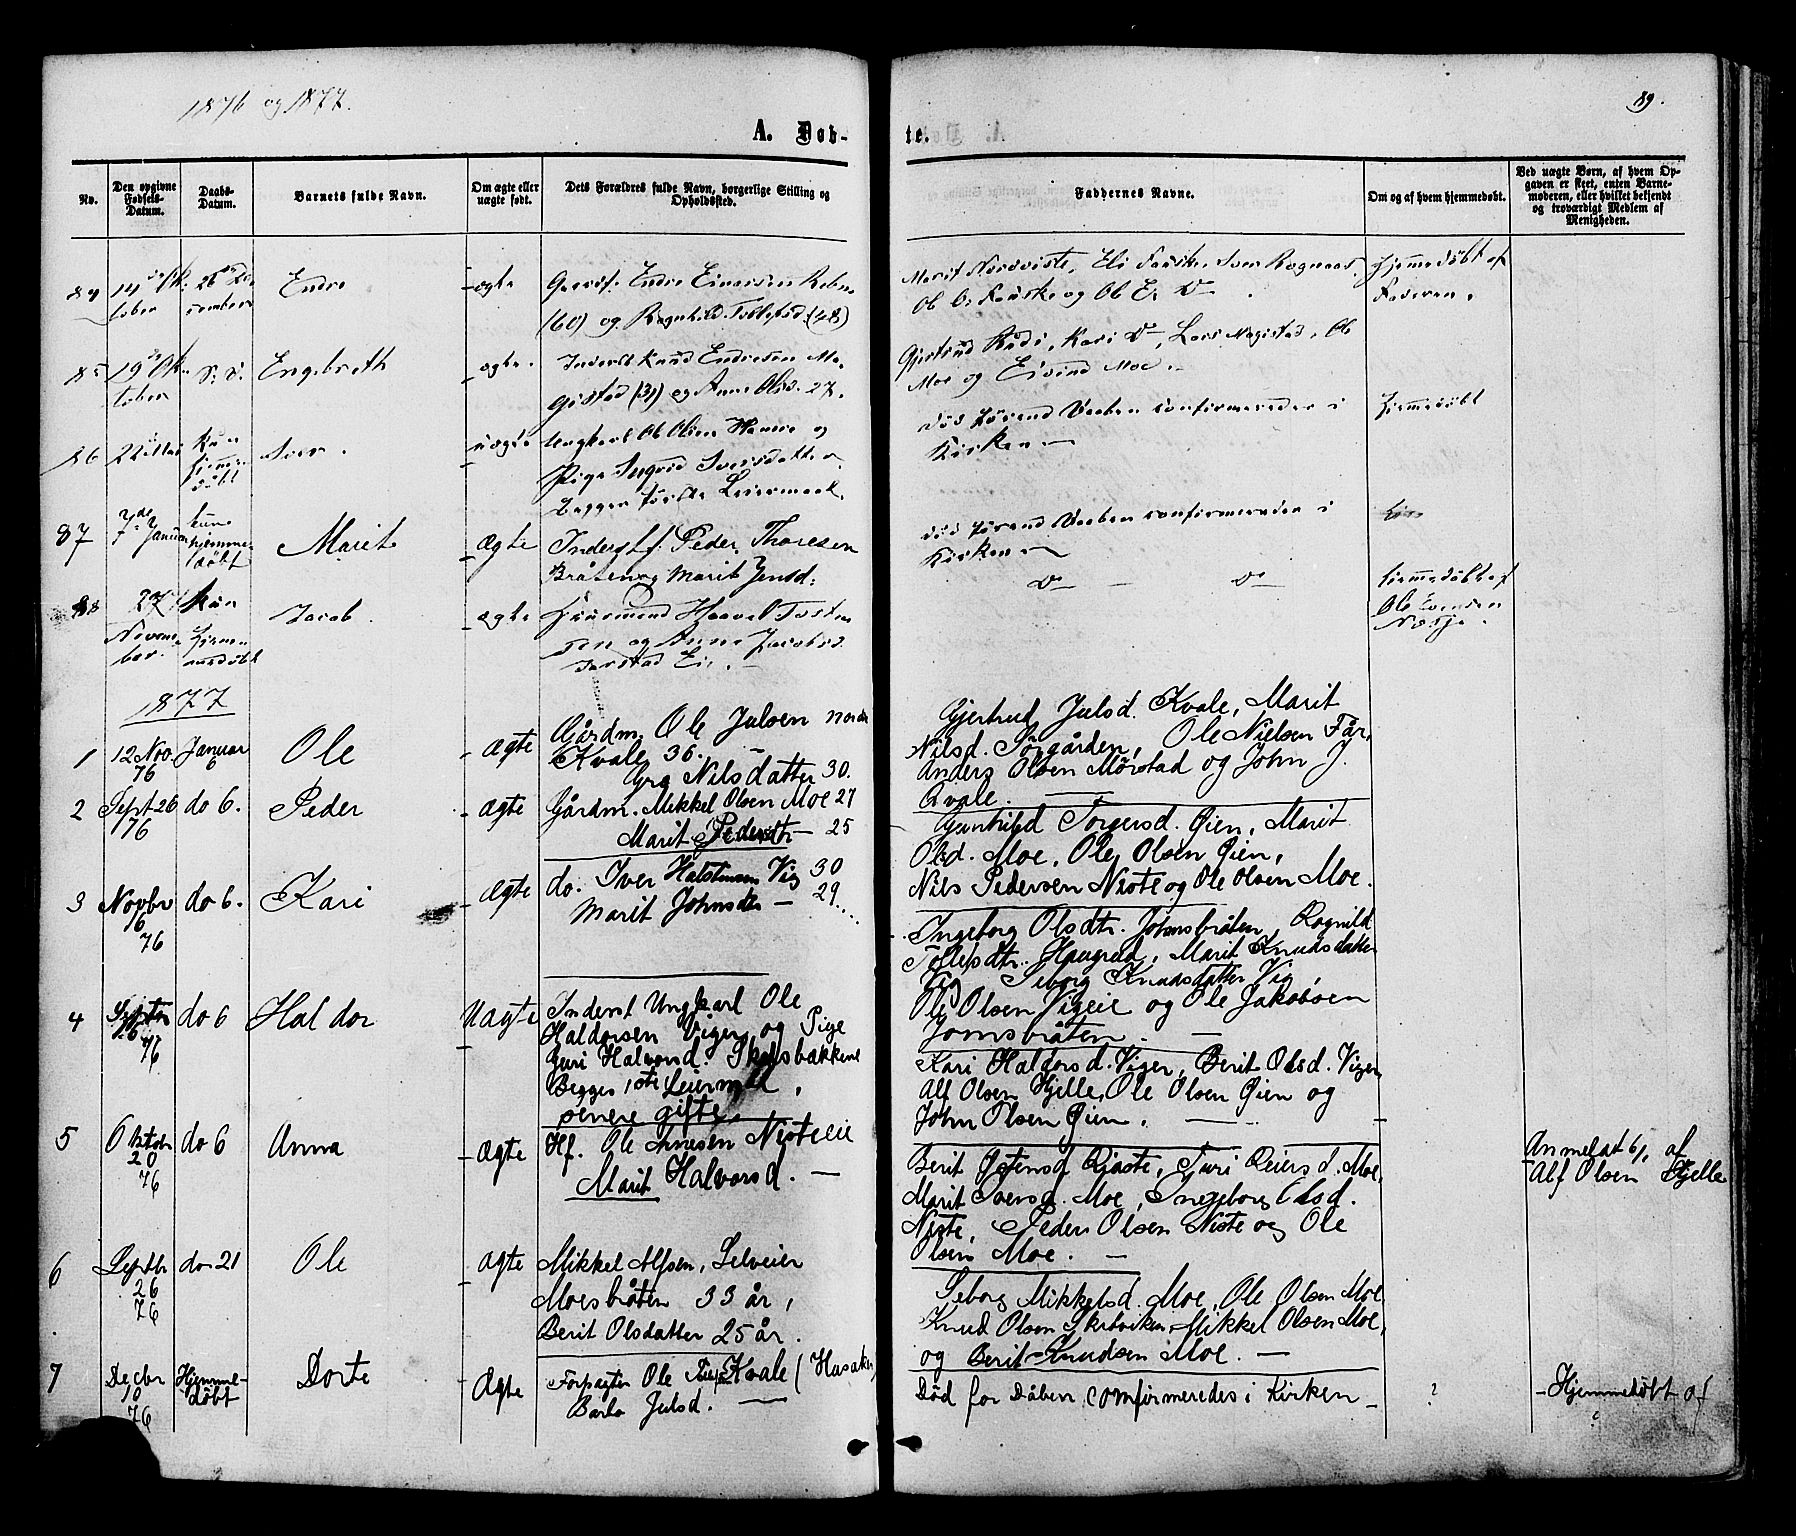 1876 og 1877.
89.
A. Døb-
te.
No.
Den opgivne Fødsels-Datum.
Daabs-Datum.
Barnets fulde Navn.
Om ægte eller uægte født.
Dets Forældres fulde Navn, borgerlige Stilling og Opholdssted.
Faddernes Navne.
Om og af hvem hjemmedøbt.
Ved uægte Børn, af hvem Opgaven er skeet, enten Barnemoderen, eller hvilket bekjendt og troværdigt Medlem af Menigheden.
84
Endre
ægte
Endre Einarsen
(60) og Ragnhild (48)
Marit Nordviste, Eli Fauske, Iver
Ob O. Fauske og Ob E. Do
hjemmedøbt af
Faderen.
85
Engebreth
ægte
Inderst Knud Endresen Ma-
gistad (31) og Anne Olsd. 27.
Gjertrud Rudi, Kari Do, Lars Magistad, Ob
Moe og Eivind Moe.
86
kun
hjemme
døbt
Iver.
uægte
Ungkarl Ob Olsen og
Pige Iversdatter
Begges første Leiermaal.
død førend Daaben confirmeredes i
Kirken
hjemmedøbt
87
7de Januar
kun
hjemme
døbt
Marit
Ægte
Inderst f. Peder Thoresen
Bråten og Marit Jensd:
død førend Daaben confirmereden i
Kirken
88
27
Novem-
ber.
kun
hjemmedøbt
Jacob.
ægte
Huusmand Haavel Tosten
sen og Anne Jacobsd.
Do — Do
hjemmedøbt af
Ole
1877
1
12 Nov.
76
Januar
6
Ole
ægte
Gårdm. Ole Julsen nordre
Kvale 36.
Nilsdatter 30.
Gjertrud Julsd. Kvale, Marit
Nilsd. Sørgården, Ole Nielsen
Anders Olsen Mørstad og John J.
Qvale.
2
Sept 26
76
do 6.
Peder
ægte
Gårdm. Mikkel Olsen Moe 27
Marit Pedersdtr — 25
Gunhild Torgersd. Øien, Marit
Olsd. Moe, Ole Olsen Øien,
Nils Pedersen Niste og Ole Olsen Moe.
3
Novbr
16
76
do 6.
Kari
ægte
do. Iver Halstensen Vig 30
Marit Johnsdtr — 29.
Ingeborg Olsdtr. Johnsbråten, Ragnild
Tollefsdtr. Haugrud, Marit Knudsdatter
Vig Siborg Knudsdatter Vig,
Ole Olsen Vigeie og Ole Jakobsen
Jomsbråten.
4
76
do 6
Haldor
Uægte
Inderst Ungkarl Ole
Haldorsen Viger og Pige
Guri Halvord. Skolsbakkene
Begges 1ste Leiermål,
senere gifte.
Kari Haldorsd. Viger, Berit Olsd. Viger,
Alf Olsen Hjelle, Ole Olsen Øien og
John Olsen Øien.
Anmeldt 6/1 af
Alf Olsen Hjelle
5
Oktobr
20
76
do 6
Anna
ægte
Hf. Ole Nisteeie
Marit Halvorsd. —
Berit Østensd. Qjaste, Turi Reiersd. Moe,
Marit Iversd. Moe, Ingeborg Olsd.
Niste, Peder Olsen Niste og Ole
Olsen Moe. —
6
Septbr
26
76
do 21
Ole
ægte
Mikkel Alfsen, Selveier
Moesbråten 33 år,
Berit Olsdatter 25 år.
Siborg Mikkelsd. Moe, Ole Olsen Moe
Knud Olsen Skutviken, Mikkel Olsen Moe,
og Berit Knudsen Moe. —
7
Decbr
10
76
Hjemme-
døbt
Dorte
Ægte
Forpagter Ole Kvale (Husaker)
Barbo Julsd. —
Død før Dåben, comfirmeredes i Kirken
?
Hjemmedøbt af
?